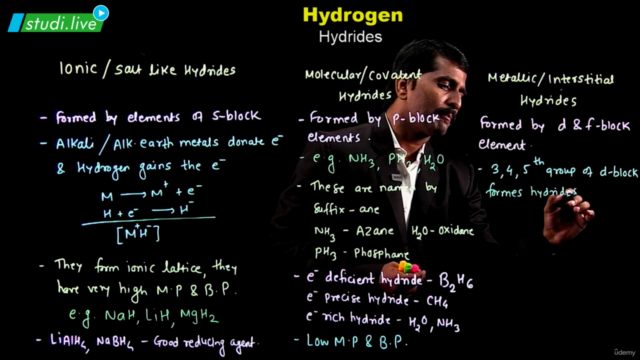 studi.live
Hydrogen
Hydrides
Ionic / Salt like Hydrides
- Formed by elements of S-block
- Alkali / Alk. earth metals donate e⁻
& Hydrogen gains the e⁻
M → M⁺ + e⁻
H + e⁻ → H⁻
[M⁺H⁻]
- They form ionic lattice, they
have very high M.P & B.P.
e.g. NaH, LiH, MgH₂
- LiAlH₄, NaBH₄ - Good reducing agent.
Molecular / Covalent
Hydrides
- Formed by P-block
elements
- e.g. NH₃, PH₃, H₂O
- These are named by
suffix - ane
NH₃ - Azane H₂O - Oxidane
PH₃ - Phosphane
- e⁻ deficient hydride - B₂H₆
e⁻ precise hydride - CH₄
e⁻ rich hydride - H₂O, NH₃
- Low M.P & B.P.
Metallic / Interstitial
Hydrides
Formed by d & f-block
element.
- 3, 4, 5ᵗʰ group of d-block
formes hydrides
ûdemy